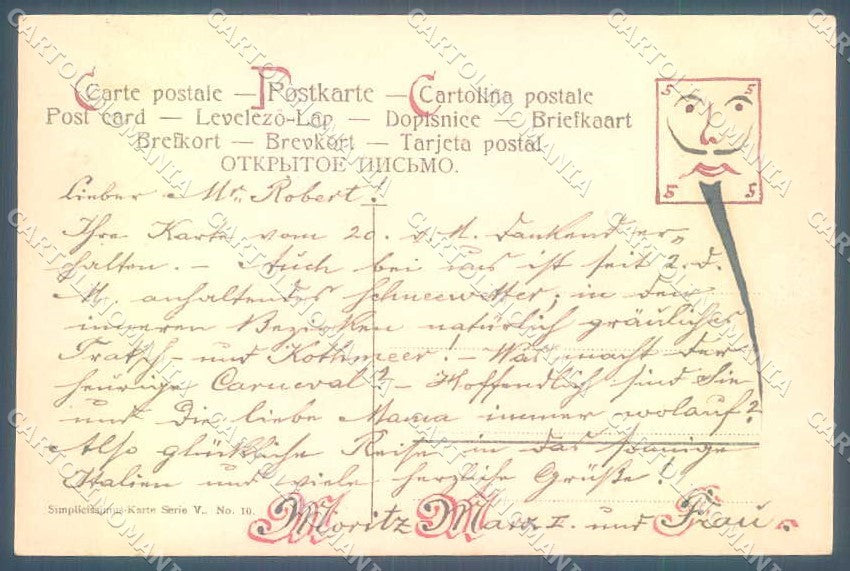 Carte postale — Postkarte — Cartolina postale
Post card — Levelező-Lap — Dopisnice — Briefkaart
Brefkort — Brevkort — Tarjeta postal
ОТКРЫТОЕ ПИСЬМО.
5 5
5 5
Lieber Mr. Robert!
Ihre Karte vom 20. d. M. dankend er-
halten. – Auch bei uns ist seit 2. d.
M. anhaltendes Schneewetter; in den
inneren Bezirken natürlich gräuliches
Tratsch- und Kothmeer! – Was macht der
heurige Carneval? – Hoffendlich sind Sie
und die liebe Mama immer wolauf?
Also glückliche Reise in das sonnige
Italien und viele herzliche Grüße!
Simplicissimus-Karte Serie V., No. 10.
Moritz Marx I. und Frau.
CARTOLINOMANIA